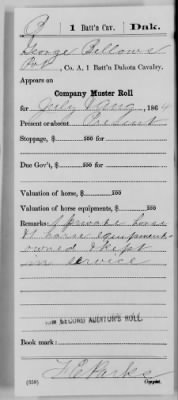 B | 1 Batt'n Cav. | Dak.
George Bellows
Pvt, Co. A, 1 Batt'n Dakota Cavalry.
Appears on
Company Muster Roll
for July & Aug, 1864
Present or absent Present
Stoppage, $ 100 for
Due Gov't, $ 100 for
Valuation of horse, $ 100
Valuation of horse equipments, $ 100
Remarks: 1 private horse
& 1 horse equipments
owned & kept
in service
SECOND AUDITOR'S ROLL.
Book mark:
(358) Copyist.